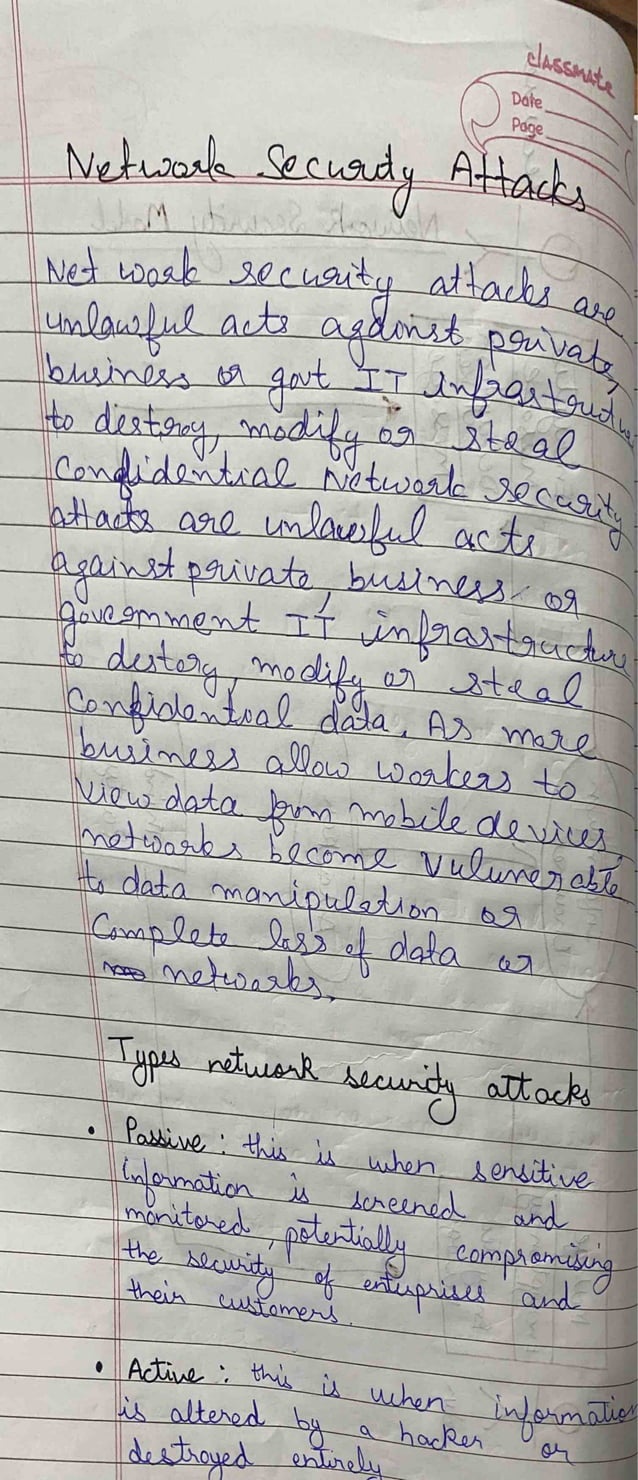 classmate
Date
Page
Network Security Attacks
Network security attacks are
unlawful acts against private,
business or govt IT infrastructure
to destroy, modify or steal
Confidential Network security
attacks are unlawful acts
against private, business or
government IT infrastructure
to destory, modify or steal
Confidential data. As more
business allow workers to
view data from mobile devices,
networks become vulunerable
to data manipulation or
Complete loss of data or
networks.
Types network security attacks
• Passive : this is when sensitive
information is screened and
monitored, potentially compromising
the security of enterprises and
their customers.
• Active : this is when information
is altered by a hacker or
destroyed entirely